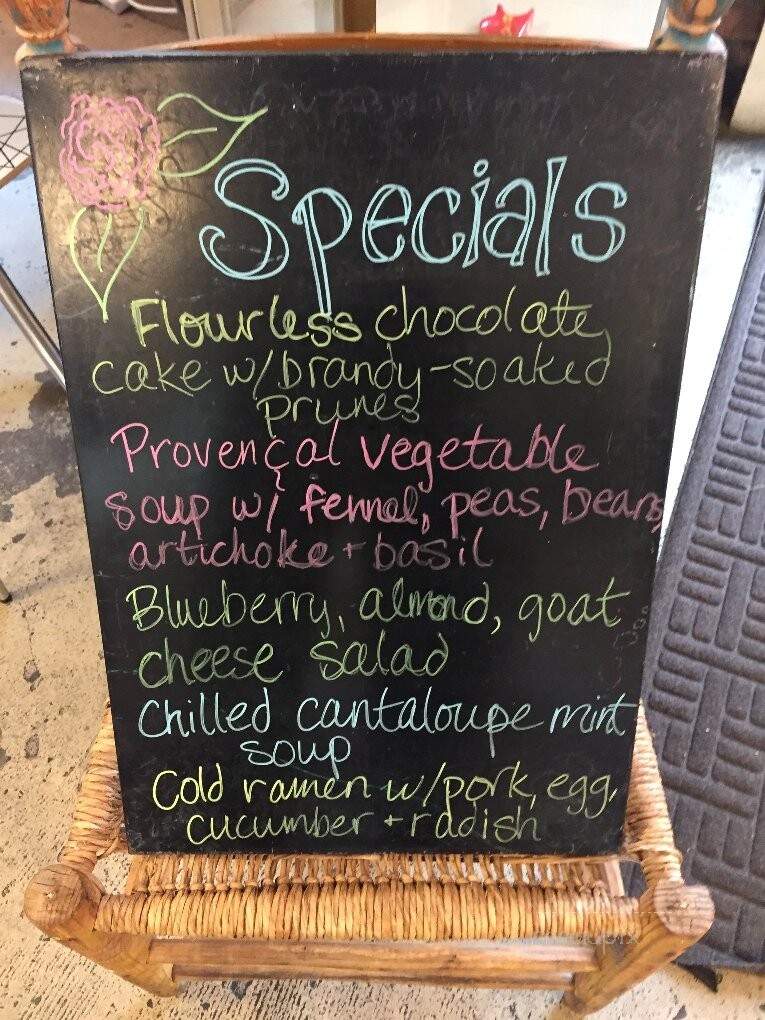 Specials
Flourless chocolate
cake w/brandy-soaked
prunes
Provençal vegetable
soup w/ fennel, peas, beans,
artichoke + basil
Blueberry, almond, goat
cheese salad
Chilled cantaloupe mint
soup
Cold ramen w/pork, egg,
cucumber + radish